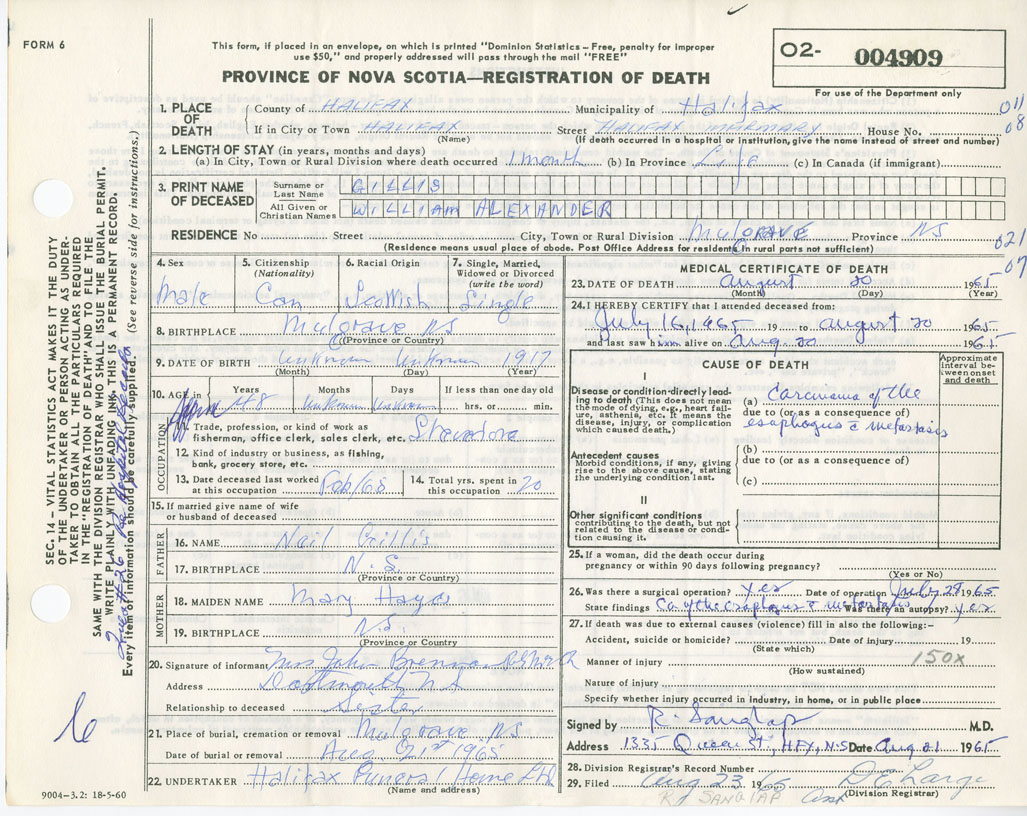 FORM 6
This form, if placed in an envelope, on which is printed "Dominion Statistics – Free, penalty for improper
use $50," and properly addressed will pass through the mail "FREE"
O2- 004909
PROVINCE OF NOVA SCOTIA—REGISTRATION OF DEATH
For use of the Department only
1. PLACE OF DEATH
County of HALIFAX Municipality of Halifax 011
If in City or Town HALIFAX Street HALIFAX House No. 08
(Name) (If death occurred in a hospital or institution, give the name instead of street and number)
2. LENGTH OF STAY (in years, months and days)
(a) In City, Town or Rural Division where death occurred 1 month (b) In Province Life (c) In Canada (if immigrant)
3. PRINT NAME OF DECEASED
Surname or Last Name GILLIS
All Given or Christian Names WILLIAM ALEXANDER
RESIDENCE No Street City, Town or Rural Division Mulgrave Province NS 021
(Residence means usual place of abode. Post Office Address for residents in rural parts not sufficient) 07
4. Sex Male
5. Citizenship (Nationality) Can
6. Racial Origin Scottish
7. Single, Married, Widowed or Divorced (write the word) Single
8. BIRTHPLACE Mulgrave NS
(Province or Country)
9. DATE OF BIRTH Unknown Unknown 1917
(Month) (Day) (Year)
10. AGE in Years Months Days If less than one day old
48 Unknown Unknown hrs. or min.
OCCUPATION
11. Trade, profession, or kind of work as
fisherman, office clerk, sales clerk, etc. Stevadore
12. Kind of industry or business, as fishing,
bank, grocery store, etc.
13. Date deceased last worked at this occupation Feb/65
14. Total yrs. spent in this occupation 20
15. If married give name of wife
or husband of deceased
FATHER
16. NAME Neil Gillis
17. BIRTHPLACE N.S.
(Province or Country)
MOTHER
18. MAIDEN NAME Mary Hayes
19. BIRTHPLACE N.S.
(Province or Country
20. Signature of informant Mrs John Brennan
Address Dartmouth NS
Relationship to deceased Sister
21. Place of burial, cremation or removal Mulgrave NS
Date of burial or removal Aug. 21st 1965
22. UNDERTAKER Halifax Funeral Home Ltd
(Name and address)
9004–3.2: 18-5-60
MEDICAL CERTIFICATE OF DEATH
23. DATE OF DEATH August 20 1965
(Month) (Day) (Year)
24. I HEREBY CERTIFY that I attended deceased from:
July 16, 1965 19 to August 20 1965
and last saw him alive on Aug. 20 1965
CAUSE OF DEATH
Approximate interval between onset and death
I
Disease or condition directly leading
to death (This does not mean
the mode of dying, e.g., heart failure,
asthenia, etc. It means the
disease, injury, or complication
which caused death.)
(a) Carcinoma of the
due to (or as a consequence of)
esophagus c metastasis
Antecedent causes
Morbid conditions, if any, giving
rise to the above cause, stating
the underlying condition last.
(b)
due to (or as a consequence of)
(c)
II
Other significant conditions
contributing to the death, but not
related to the disease or condition
causing it.
25. If a woman, did the death occur during
pregnancy or within 90 days following pregnancy?
(Yes or No)
26. Was there a surgical operation? Yes Date of operation July 29 1965
State findings Ca of the esophagus c metastasis Was there an autopsy? yes
27. If death was due to external causes (violence) fill in also the following:–
Accident, suicide or homicide? Date of injury 19
(State which)
150X
Manner of injury
(How sustained)
Nature of injury
Specify whether injury occurred in industry, in home, or in public place
Signed by R. Sanglap M.D.
Address 1335 Queen St., HFX, N.S Date Aug 21 1965
28. Division Registrar's Record Number
29. Filed Aug 23 1965
(Division Registrar)
R SANGLAP
SEC. 14 – VITAL STATISTICS ACT MAKES IT THE DUTY
OF THE UNDERTAKER OR PERSON ACTING AS UNDERTAKER
TO OBTAIN ALL THE PARTICULARS REQUIRED
IN THE "REGISTRATION OF DEATH" AND TO FILE THE
SAME WITH THE DIVISION REGISTRAR WHO SHALL ISSUE THE BURIAL PERMIT.
WRITE PLAINLY WITH UNFADING INK. THIS IS A PERMANENT RECORD.
Every item of information should be carefully supplied. (See reverse side for instructions.)